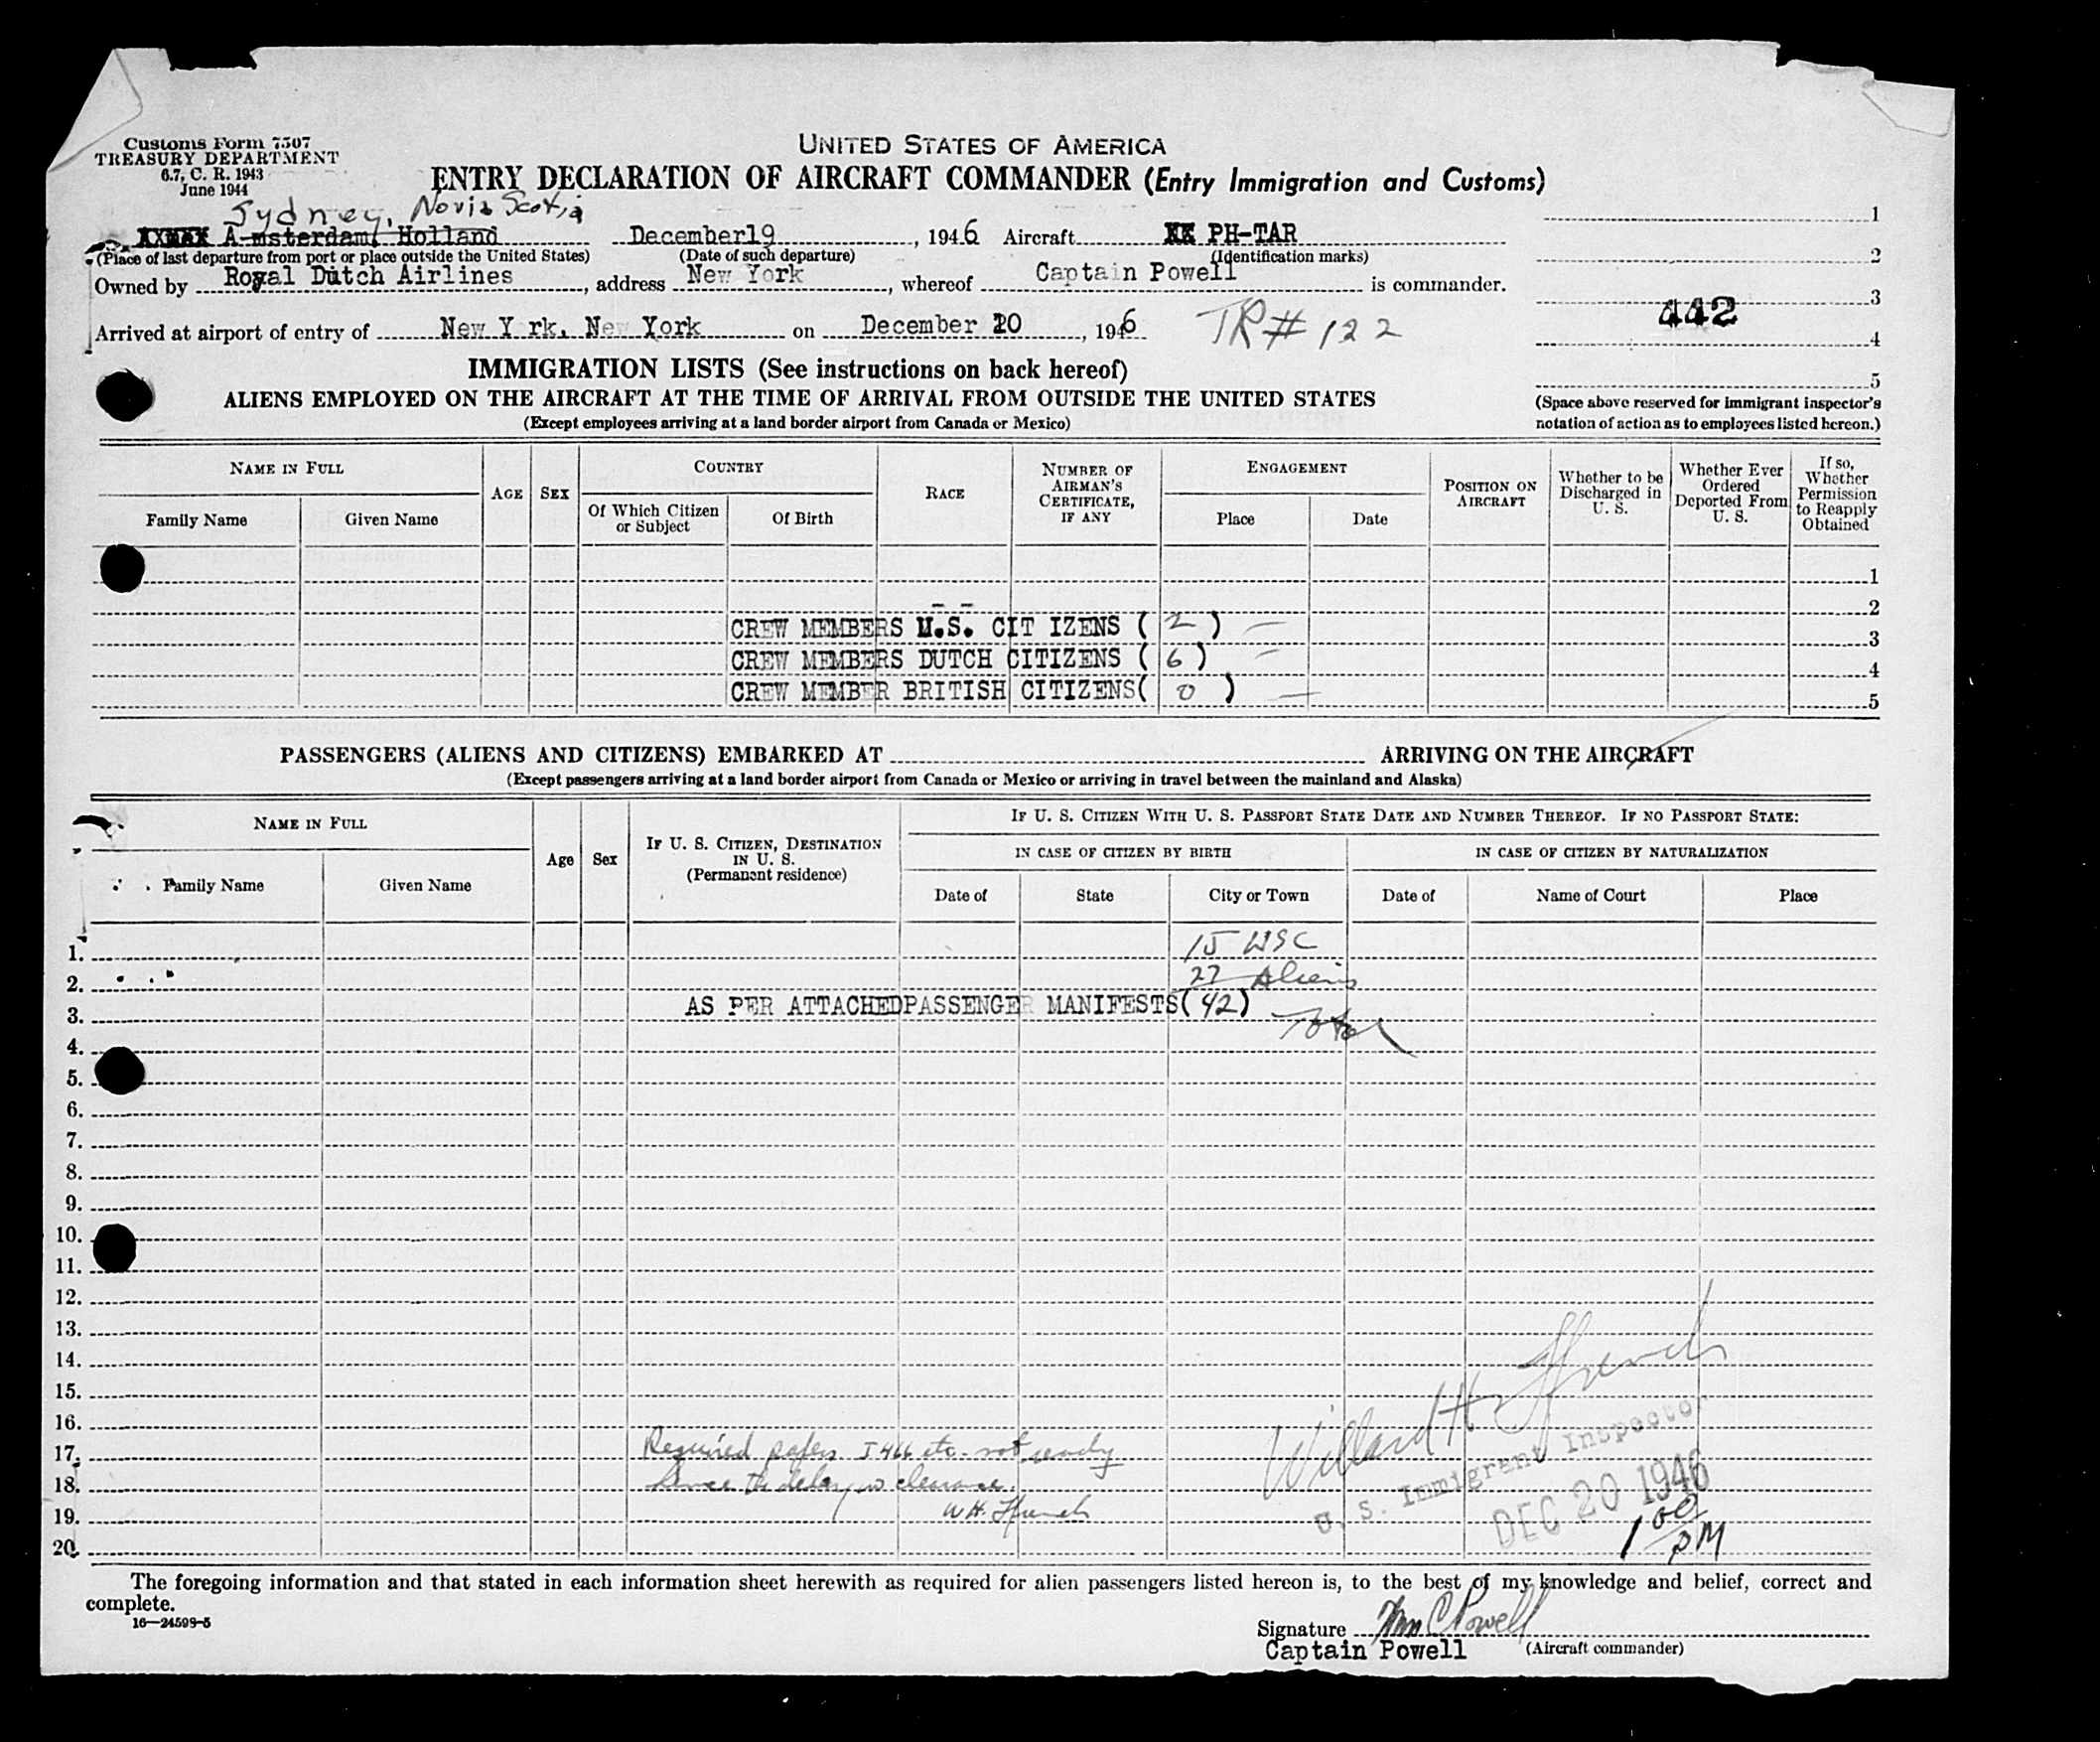 Customs Form 7507
TREASURY DEPARTMENT
6.7, C. R. 1943
June 1944
UNITED STATES OF AMERICA
ENTRY DECLARATION OF AIRCRAFT COMMANDER (Entry Immigration and Customs)
Sydney, Novia Scotia
A-msterdam, Holland December19, 1946 Aircraft XX PH-TAR
(Place of last departure from port or place outside the United States) (Date of such departure) (Identification marks)
Owned by Royal Dutch Airlines, address New York, whereof Captain Powell is commander.
Arrived at airport of entry of New Y rk, New York on December 20, 1946 TR# 122
1
2
3
442
4
5
(Space above reserved for immigrant inspector's
notation of action as to employees listed hereon.)
IMMIGRATION LISTS (See instructions on back hereof)
ALIENS EMPLOYED ON THE AIRCRAFT AT THE TIME OF ARRIVAL FROM OUTSIDE THE UNITED STATES
(Except employees arriving at a land border airport from Canada or Mexico)
NAME IN FULL
Family Name
Given Name
AGE
SEX
COUNTRY
Of Which Citizen
or Subject
Of Birth
RACE
NUMBER OF
AIRMAN'S
CERTIFICATE,
IF ANY
ENGAGEMENT
Place
Date
POSITION ON
AIRCRAFT
Whether to be
Discharged in
U. S.
Whether Ever
Ordered
Deported From
U. S.
If so,
Whether
Permission
to Reapply
Obtained
1
2
CREW MEMBERS U.S. CIT IZENS ( 2 ) — 3
CREW MEMBERS DUTCH CITIZENS ( 6 ) — 4
CREW MEMBER BRITISH CITIZENS( 0 ) — 5
PASSENGERS (ALIENS AND CITIZENS) EMBARKED AT ARRIVING ON THE AIRCRAFT
(Except passengers arriving at a land border airport from Canada or Mexico or arriving in travel between the mainland and Alaska)
NAME IN FULL
Family Name
Given Name
Age
Sex
IF U. S. CITIZEN, DESTINATION
IN U. S.
(Permanent residence)
IF U. S. CITIZEN WITH U. S. PASSPORT STATE DATE AND NUMBER THEREOF. IF NO PASSPORT STATE:
IN CASE OF CITIZEN BY BIRTH
IN CASE OF CITIZEN BY NATURALIZATION
Date of
State
City or Town
Date of
Name of Court
Place
1. 15 USC
2. 27 Aliens
3. AS PER ATTACHEDPASSENGER MANIFESTS(42) Total
4.
5.
6.
7.
8.
9.
10.
11.
12.
13.
14.
15.
16.
17. Required papers I 466 etc. not ready
18. hence the delay in clearance.
19. W.H. Ffrench
20.
Willard H Ffrench
U. S. Immigrant Inspector
DEC 20 1946
1 00 PM
The foregoing information and that stated in each information sheet herewith as required for alien passengers listed hereon is, to the best of my knowledge and belief, correct and
complete.
16—24599-5
Signature Wm C Powell
Captain Powell (Aircraft commander)